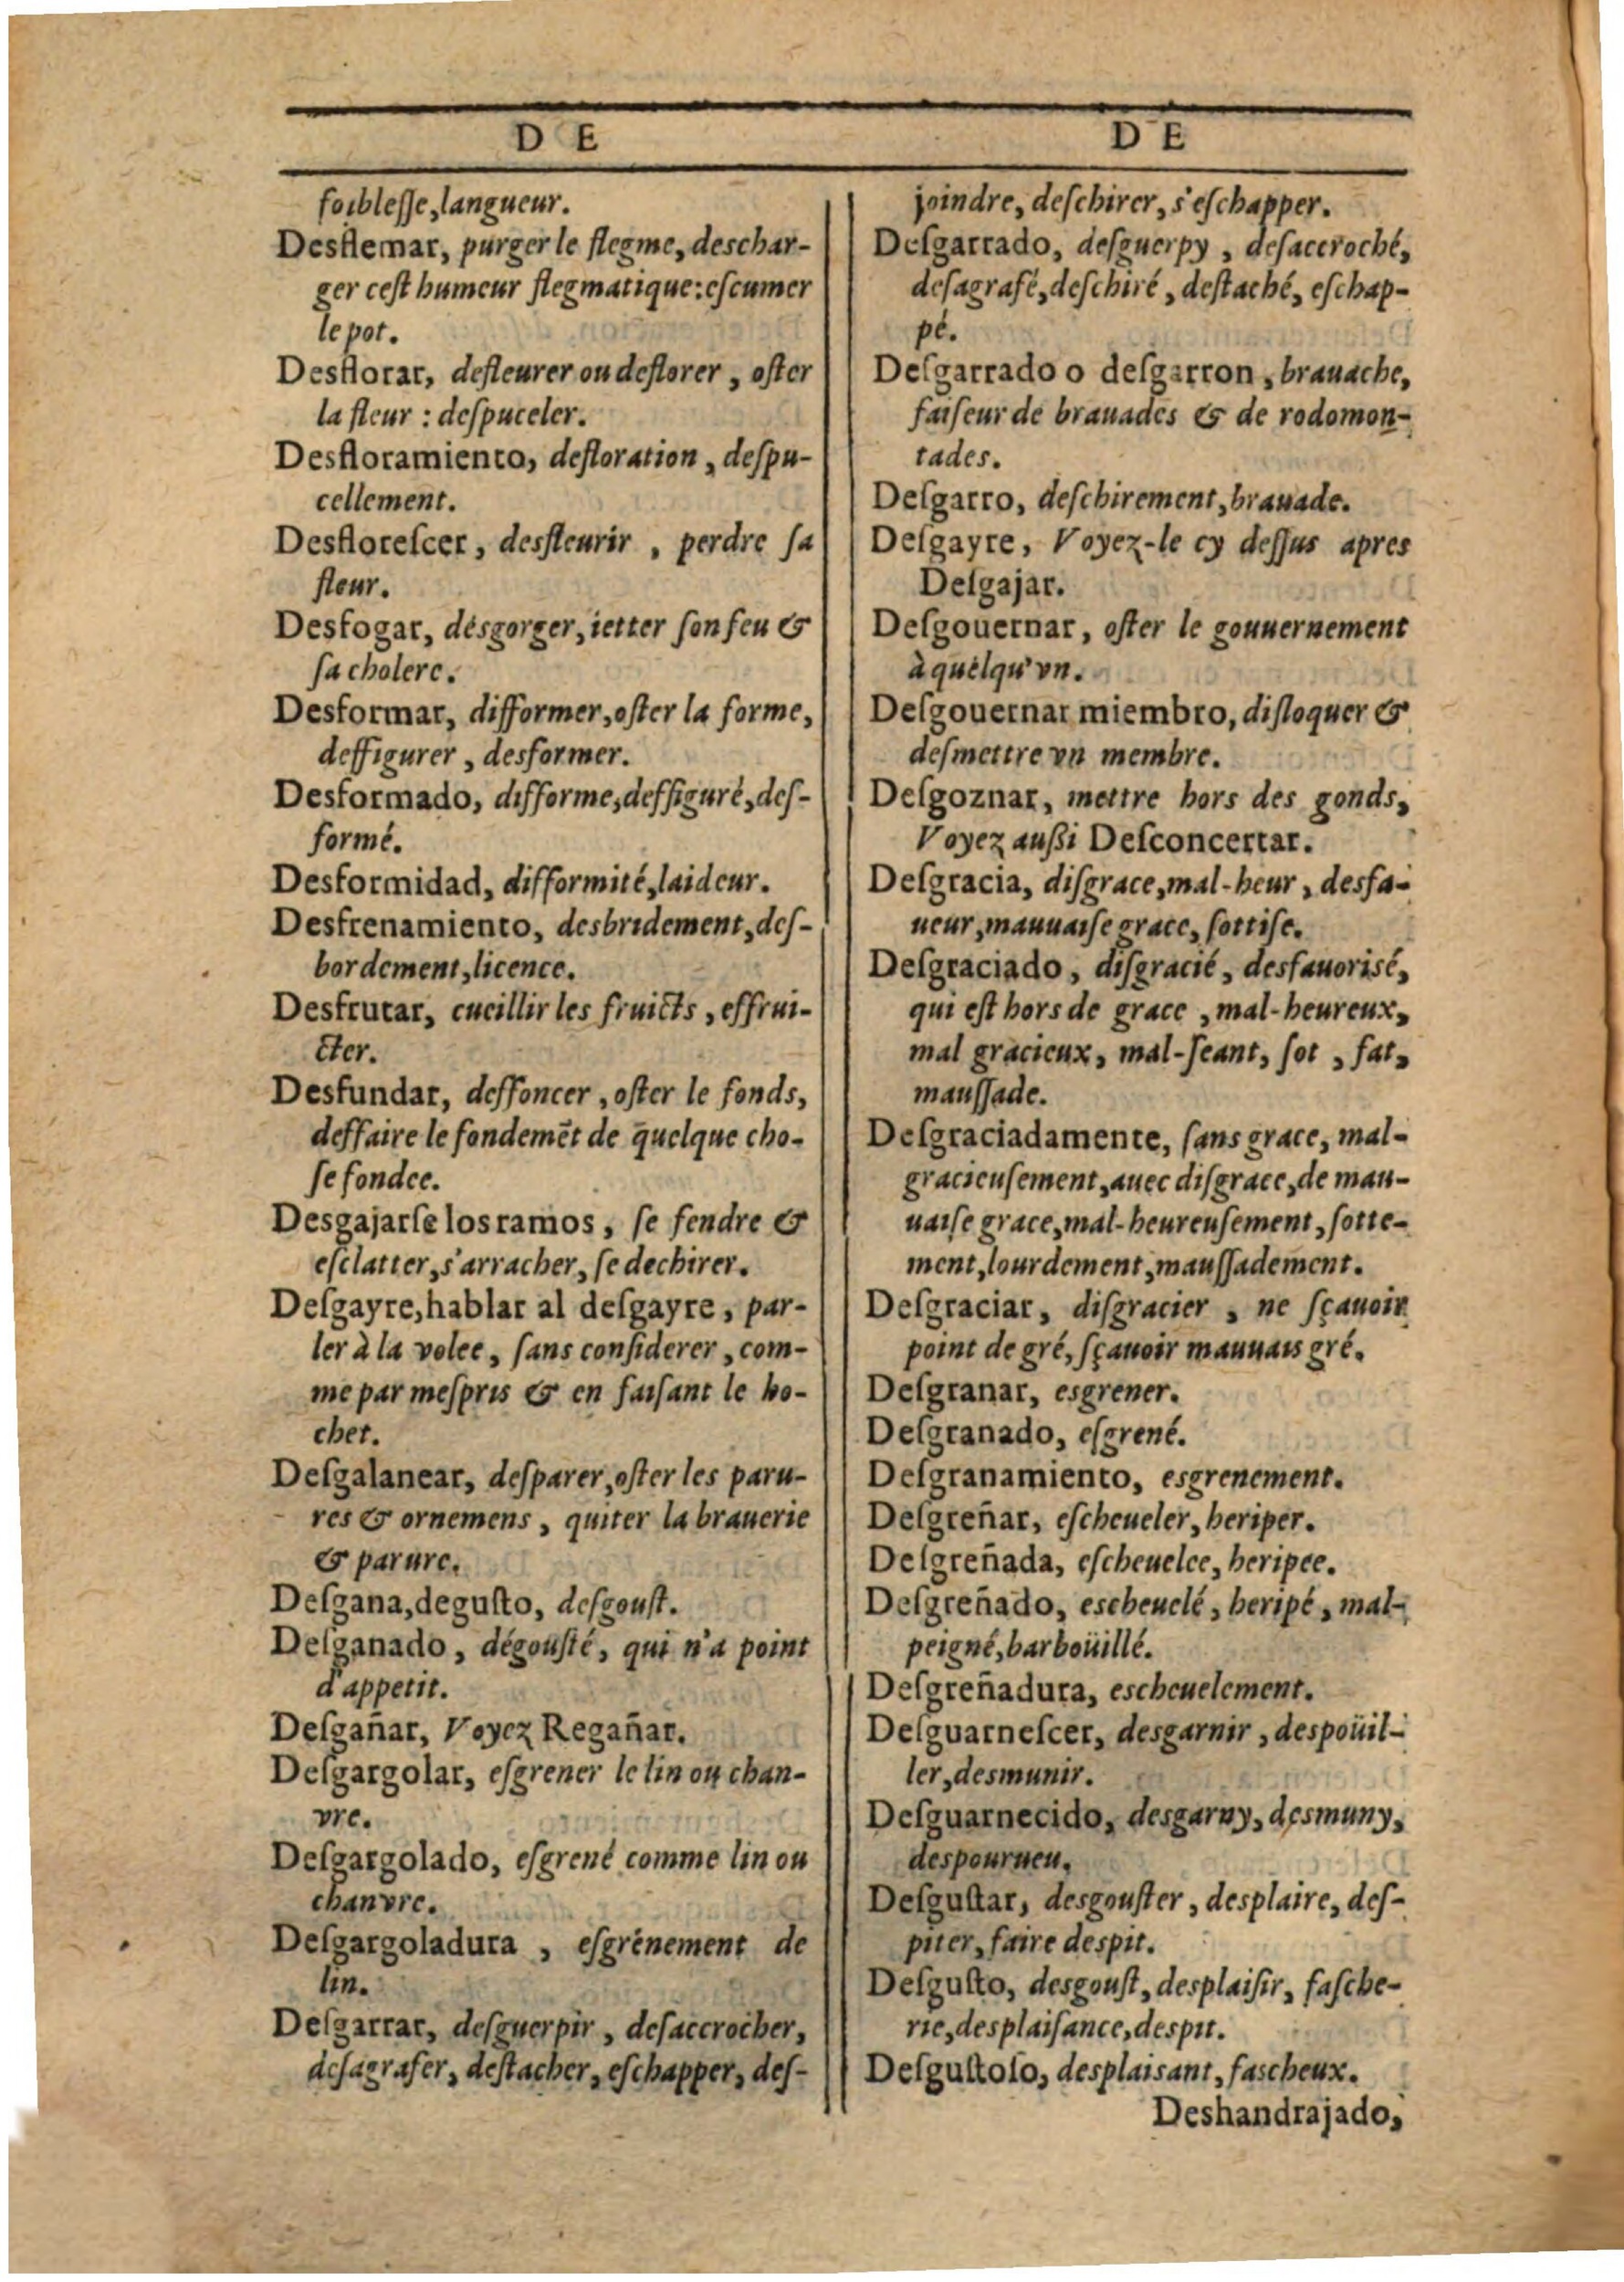 D E
foiblesse,langueur.
Desflemar, purger le flegme, deschar-
ger cest humeur flegmatique:escumer
le pot.
Desflorar, defleurer ou deflorer, oster
la fleur : deſpuceler.
Desfloramiento, defloration, deſpu-
cellement.
Desfloreſcer, desfleurir, perdre ſa
fleur.
Desfogar, désgorger, ietter ſon feu &
ſa cholere.
Desformar, difformer, oſter la forme,
deffigurer, desformer.
Desformado, difforme, deffiguré, deſ-
formé.
Desformidad, difformité, laideur.
Desfrenamiento, desbridement, deſ-
bordement, licence.
Desfrutar, cueillir les fruicts, effrui-
cter.
Desfundar, deffoncer, oſter le fonds,
deffaire le fondemẽt de quelque cho-
ſe fondee.
Desgajarſe los ramos, ſe fendre &
eſclatter, s'arracher, ſe dechirer.
Deſgayre, hablar al deſgayre, par-
ler à la volee, ſans conſiderer, com-
me par meſpris & en faiſant le ho-
chet.
Deſgalanear, deſparer, oſter les paru-
res & ornemens, quiter la brauerie
& parure.
Deſgana, deguſto, deſgouſt.
Deſganado, dégouſté, qui n'a point
d'appetit.
Deſgañar, Voyez Regañar.
Deſgargolar, eſgrener le lin ou chan-
vre.
Deſgargolado, eſgrené comme lin ou
chanvre.
Deſgargoladura, eſgrénement de
lin.
Deſgarrar, deſguerpir, deſaccrocher,
deſagrafer, deſtacher, eſchapper, deſ-
D E
joindre, deſchirer, s'eſchapper.
Deſgarrado, deſguerpy, deſaccroché,
deſagrafé, deſchiré, deſtaché, eſchap-
pé.
Deſgarrado o deſgarron, brauache,
faiſeur de brauades & de rodomon-
tades.
Deſgarro, deſchirement, brauade.
Deſgayre, Voyez-le cy deſſus apres
Deſgajar.
Deſgouernar, oſter le gouuernement
à quelqu'vn.
Deſgouernar miembro, diſloquer &
deſmettre vn membre.
Deſgoznar, mettre hors des gonds,
Voyez auſſi Deſconcertar.
Deſgracia, diſgrace, mal-heur, desfa-
ueur, mauuaiſe grace, ſottiſe.
Deſgraciado, diſgracié, desfauorisé,
qui eſt hors de grace, mal-heureux,
mal gracieux, mal-ſeant, ſot, fat,
mauſſade.
Deſgraciadamente, ſans grace, mal-
gracieuſement, auec diſgrace, de mau-
uaiſe grace, mal-heureuſement, ſotte-
ment, lourdement, mauſſadement.
Deſgraciar, diſgracier, ne ſçauoir
point de gré, ſçauoir mauuais gré.
Deſgranar, esgrener.
Deſgranado, eſgrené.
Deſgranamiento, esgrenement.
Deſgreñar, eſcheueler, heriper.
Deſgreñada, eſcheuelee, heripee.
Deſgreñado, escheuelé, heripé, mal-
peigné, barboüillé.
Deſgreñadura, escheuelement.
Deſguarneſcer, desgarnir, despoüil-
ler, desmunir.
Deſguarnecido, desgarny, desmuny,
despourueu.
Deſguſtar, desgouſter, desplaire, deſ-
piter, faire despit.
Deſguſto, desgouſt, desplaiſir, faſche-
rie, desplaiſance, despit.
Deſguſtoſo, desplaisant, fascheux.
Deshandrajado,